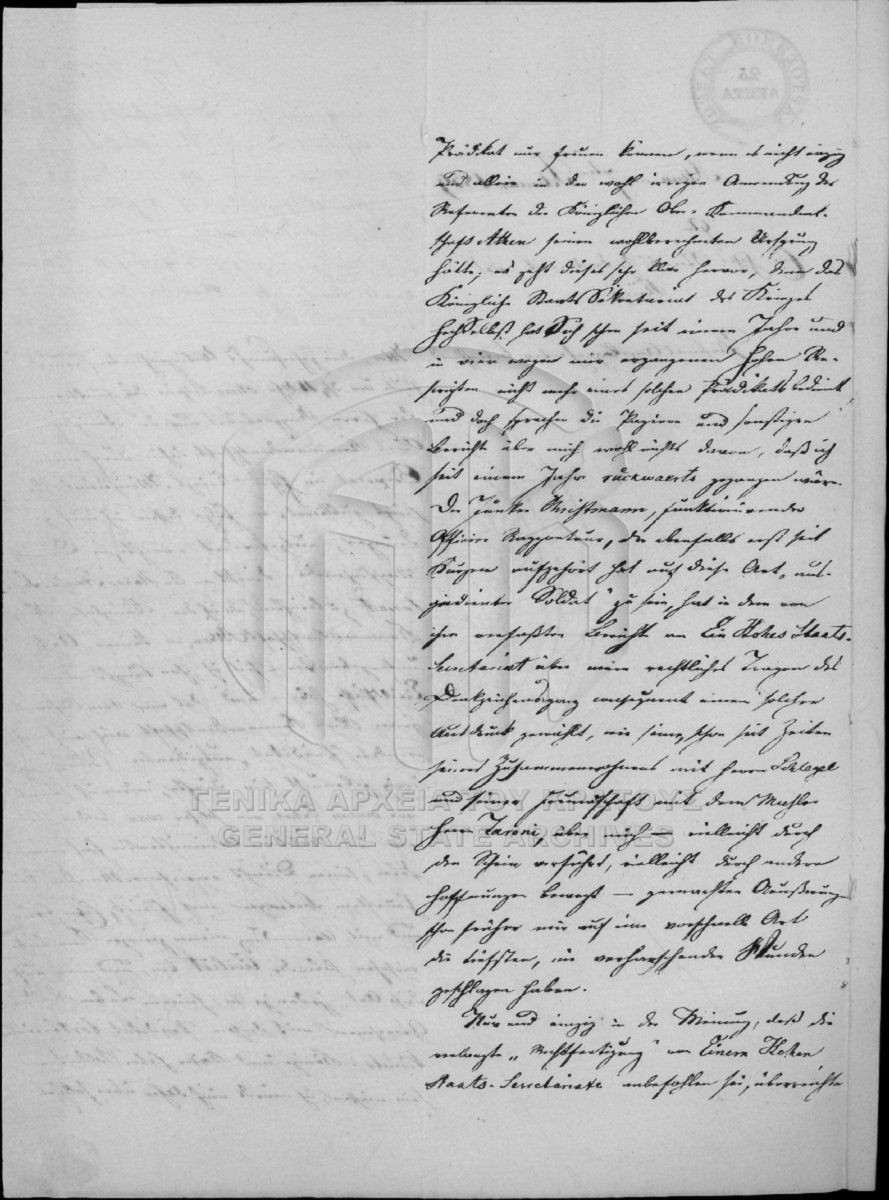 Prädikat nur freuen können, wenn es nicht einzig
und allein in der wohl irrigen Anwendung des
Referenten der Königlichen Ober-Kommandant-
schaft Athen seinen wohlberechneten Ursprung
hätte; es geht dieses sehr klar hervor, denn das
Königliche Staats Sekretariat des Krieges
Hochselbst hat Sich schon seit einem Jahre und
in vier wegen mir ergangenen hohen Re-
scripten nicht mehr eines solchen Prädikats bedient
und doch sprechen die Papiere und sonstigen
Berichte über mich wohl nichts davon, daß ich
seit einem Jahre rückwaerts gegangen wäre.
Der Junker Christmann, funktionirender
Officier Rapporteur, der ebenfalls erst seit
Kurzem aufgehört hat auf diese Art, „aus-
gedienter Soldat" zu sein, hat in dem von
ihm verfaßten Bericht an Ein Hohes Staats-
Secretariat über mein rechtliches Tragen des
Denkzeichens ganz consequent einen solchen
Ausdruck gewählt, wie seine, schon seit Zeiten
seines Zusammenwohnens mit Herrn Schlegel
und seiner Freundschaft mit dem Mahler
Herrn über mich — vielleicht durch
den Schein verführt, vielleicht durch andere
Hoffnungen bewegt — gemachten Aeußerungen
schon früher mir auf eine vorschnelle Art
die tiefsten, nie verharschenden Wunden
geschlagen haben.
Nur und einzig in der Meinung, daß die
verlangte „Rechtfertigung" von Einem Hohen
Staats-Secretariate anbefohlen sei, überreichte
ΓΕΝΙΚΑ ΑΡΧΕΙΑ ΤΟΥ ΚΡΑΤΟΥΣ
GENERAL STATE ARCHIVES